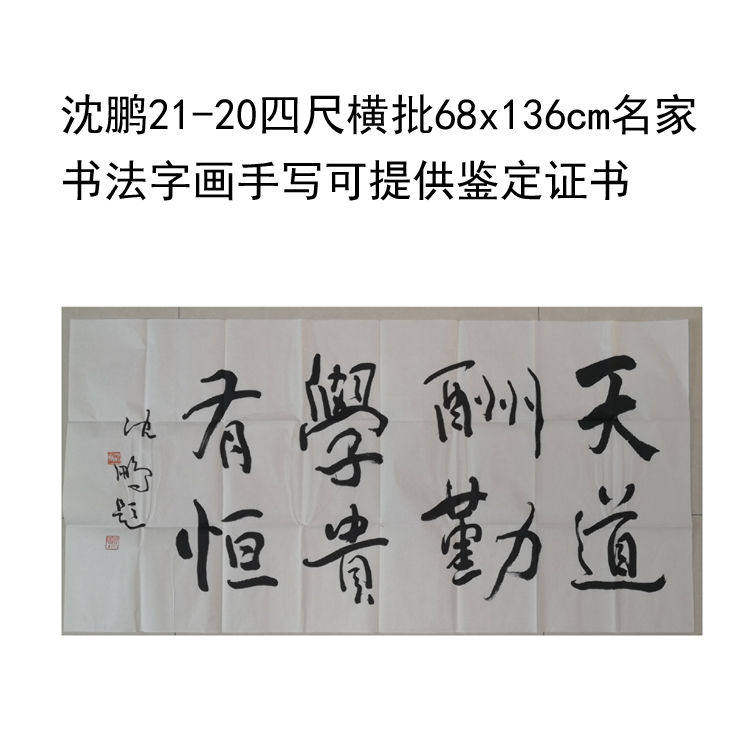 沈鹏21-20四尺横批68x136cm名家
书法字画手写可提供鉴定证书
天道
酬勤
學貴
有恒
沈鹏题